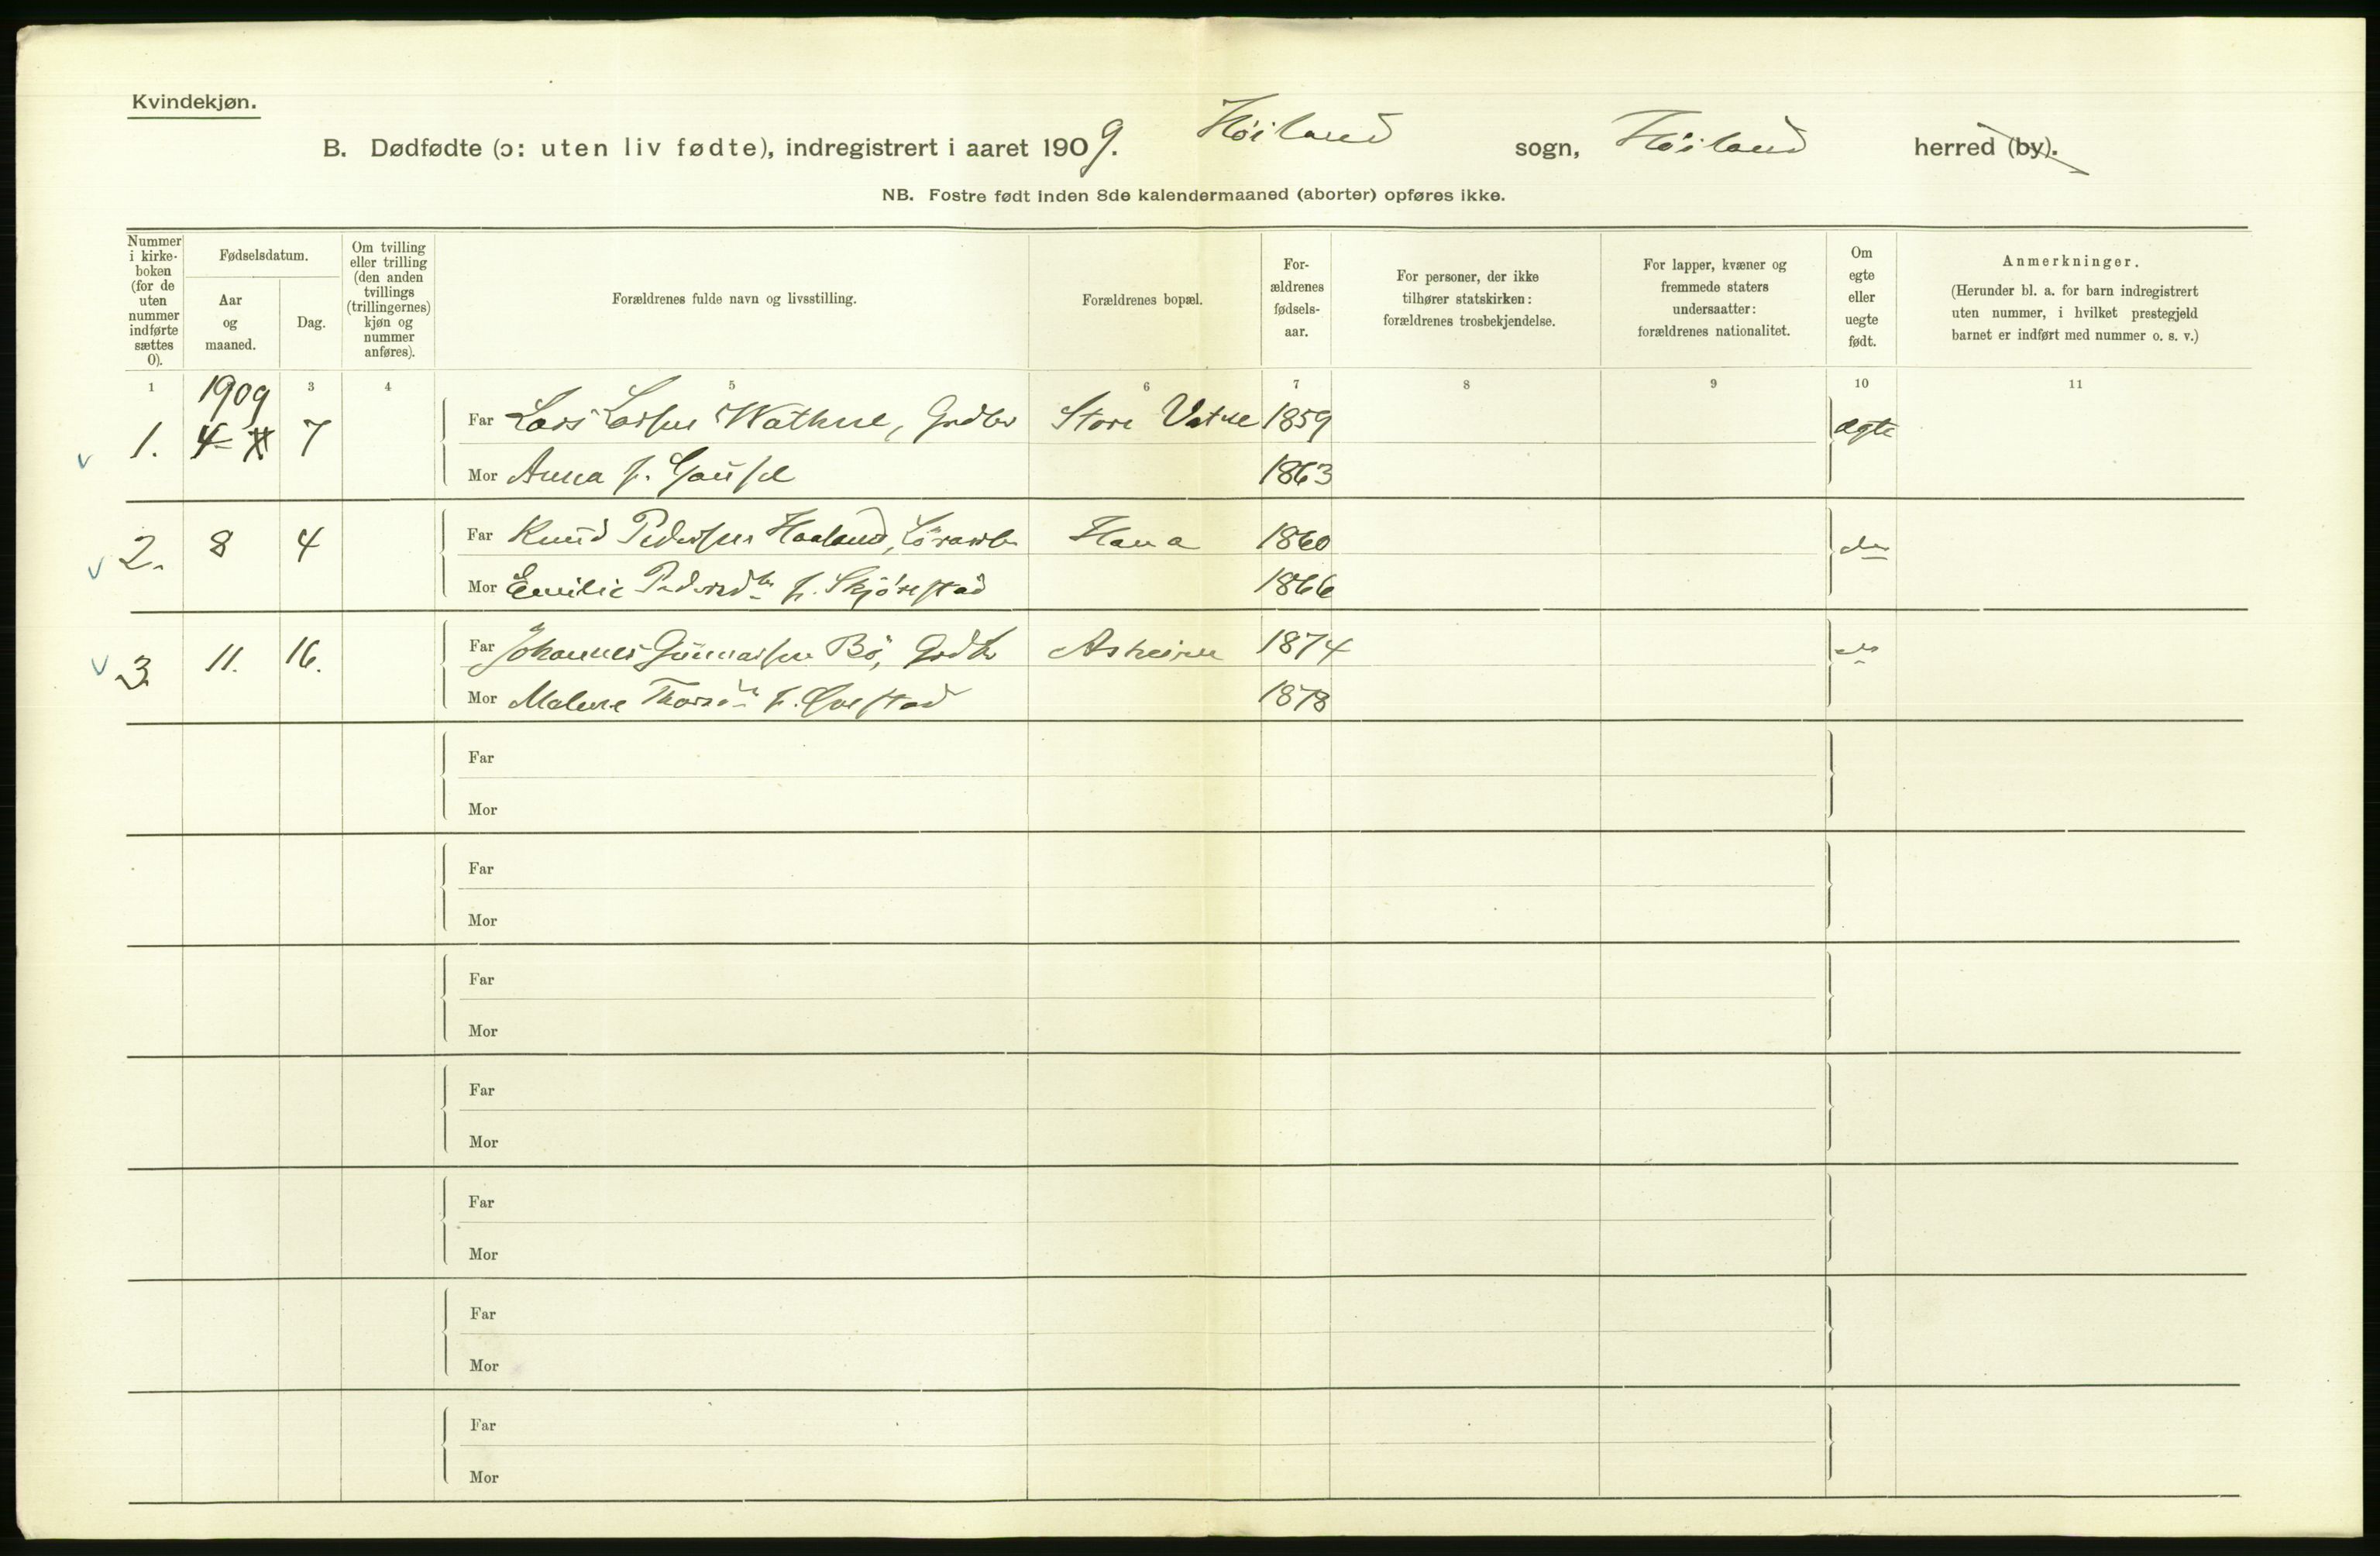 Kvindekjøn.
B. Dødfødte (ɔ: uten liv fødte), indregistrert i aaret 1909. Höiland sogn, Höiland herred (by).
NB. Fostre født inden 8de kalendermaaned (aborter) opføres ikke.
Nummer
i kirke-
boken
(for de
uten
nummer
indførte
sættes
0).
Fødselsdatum.
Aar
og
maaned.
Dag.
Om tvilling
eller trilling
(den anden
tvillings
(trillingernes)
kjøn og
nummer
anføres).
Forældrenes fulde navn og livsstilling.
Forældrenes bopæl.
For-
ældrenes
fødsels-
aar.
For personer, der ikke
tilhører statskirken:
forældrenes trosbekjendelse.
For lapper, kvæner og
fremmede staters
undersaatter:
forældrenes nationalitet.
Om
egte
eller
uegte
født.
Anmerkninger.
(Herunder bl. a. for barn indregistrert
uten nummer, i hvilket prestegjeld
barnet er indført med nummer o. s. v.)
1 3 4 5 6 7 8 9 10 11
1909
1. 4 7 Far Lars Larsen Wathne, Grdbr Store Vatne 1859 ægte
Mor Anna f. Gausel 1863
2. 8 4 Far Knud Pedersen Haaland, Hana 1860 do
Mor Emilie Pedersdtr f. Skjörestad 1866
3. 11. 16. Far Johannes Gunnarsen Bö, Grdbr Asheim 1874 do
Mor Malene f. 1878
Far
Mor
Far
Mor
Far
Mor
Far
Mor
Far
Mor
Far
Mor
Far
Mor